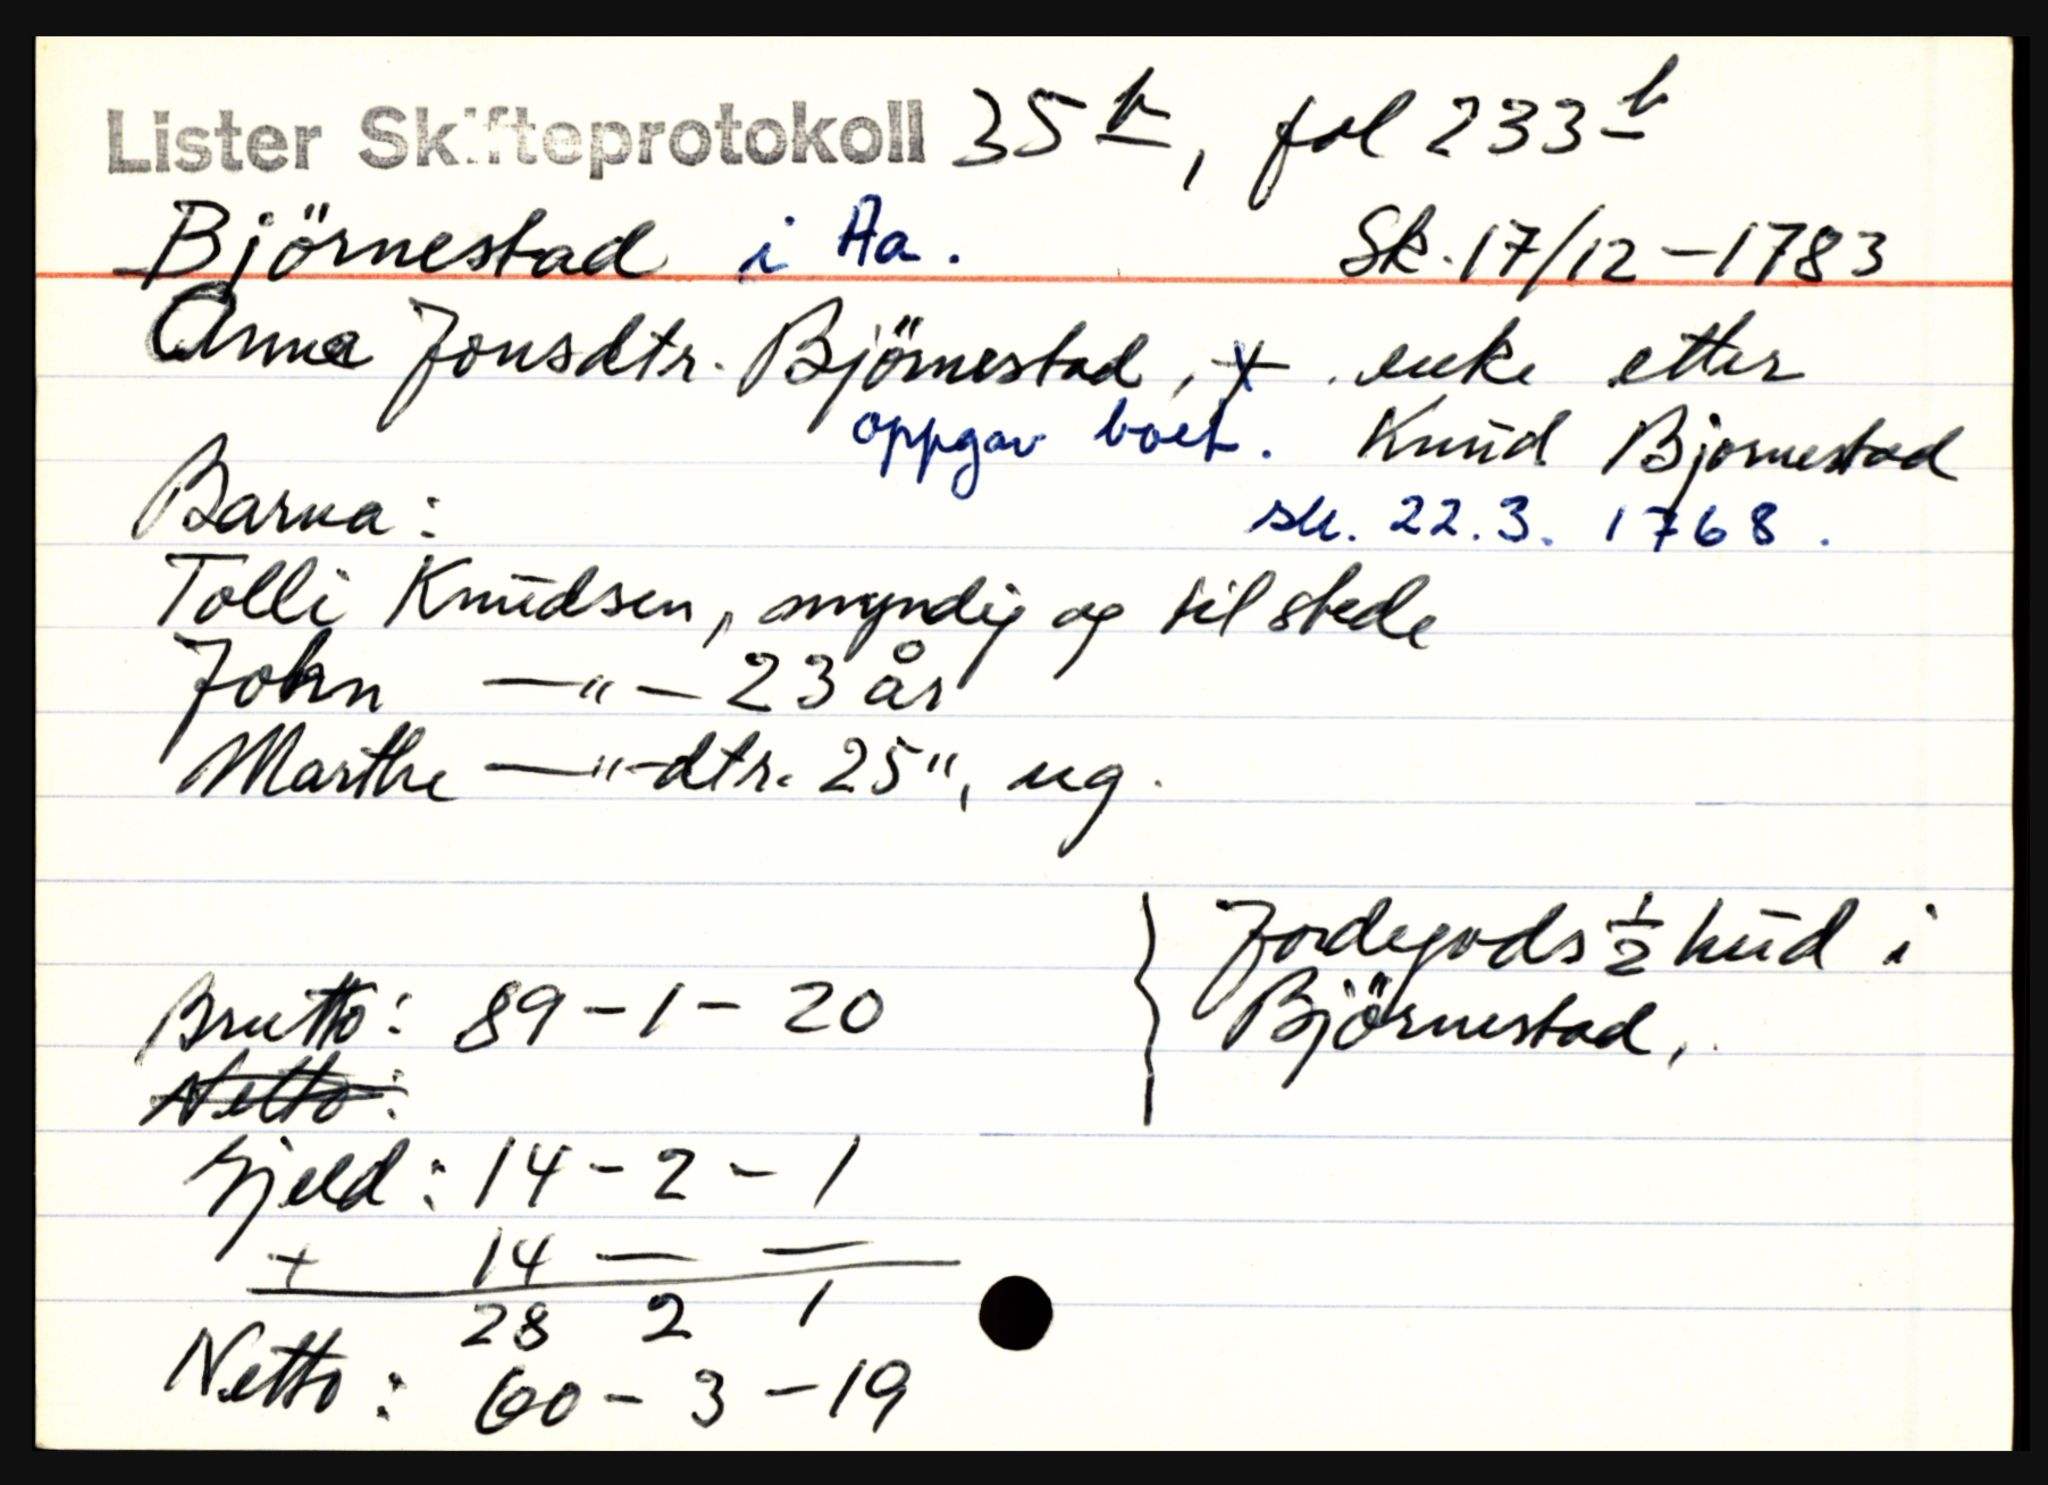 Lister Skifteprotokoll 35b, fol 233b
Björnestad i Aa. Sk. 17/12-1783
Anna Jonsdtr. Björnestad, + enke etter
oppgav boet. Knud Bjornestad
Barna: sk. 22.3. 1768.
Tolli Knudsen, myndig og til stede
John —"— 23 år
Marthe —"-dtr. 25", ug.
Jordegods ½ hud i
Brutto: 89-1-20 Björnestad,
Netto:
Gjeld: 14-2-1
+ 14 — —
28 2 1
Netto: 60-3-19